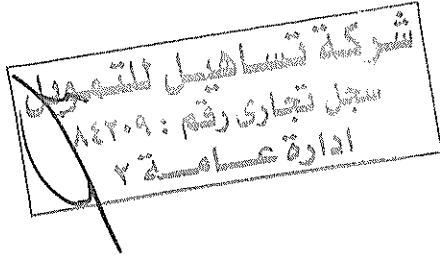 شركة تساهيل للتمويل
سجل تجارى رقم : ٨٤٢٠٩
ادارة عـامـــة ٢